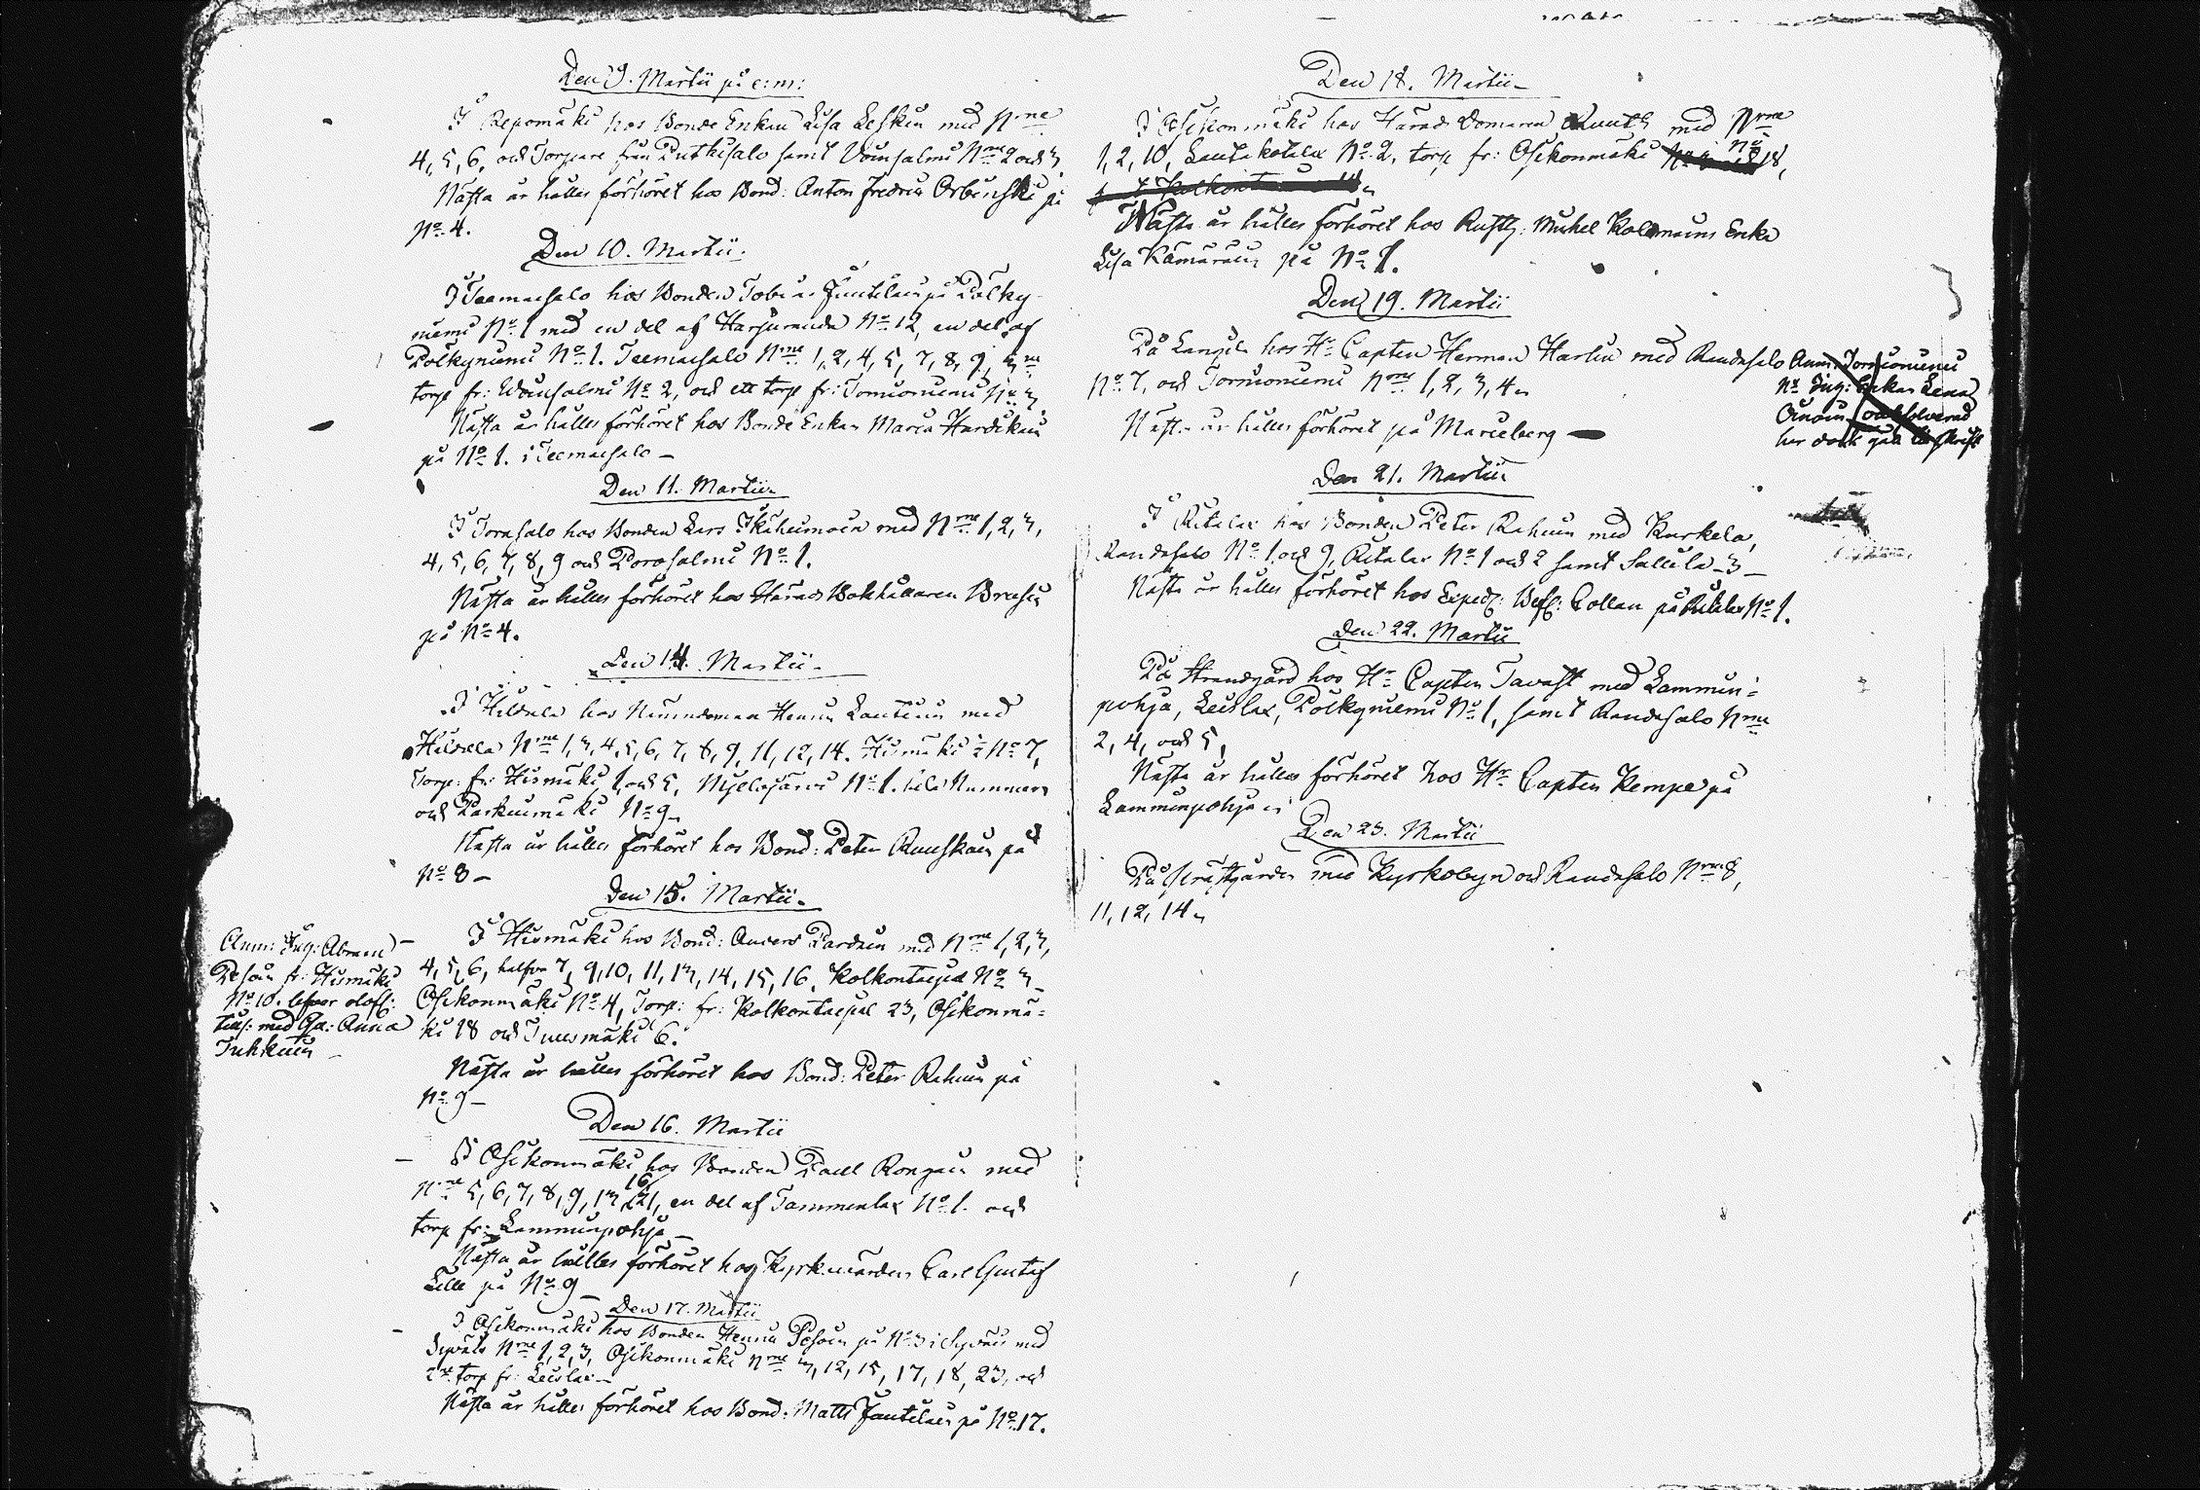 Den 9. Martii på e:m:
I Repomäki hos Bonde Enkan Lisa Leskin med N:rne
4, 5, 6, och Torpare från Putkisalo samt Voinsalmi N:rne 2 och 3
Nästa år hålles förhöret hos Bond: Anton Fredric Orbinski på
N:o 4.
Den 10. Martii.
I Teemassalo hos Bonden Tobias Jantilain på Pölky-
niemi N:o 1 med en del af Harjuranda N:o 12, en del af
Pölkyniemi N:o 1. Teemassalo N:rne 1, 2, 4, 5, 7, 8, 9, 3:ne
torp fr: Woinsalmi N:o 2, och ett torp fr: Tornioniemi N:o 3,
Nästa år hålles förhöret hos Bonde Enkan Maria Hardikain
på N:o 1. i Teemassalo –
Den 11. Martii
I Torasalo hos Bonden Lars Ikäheimoin med N:rne 1, 2, 3,
4, 5, 6, 7, 8, 9 och Porosalmi N:o 1.
Nästa år hålles förhöret hos Härads Bokhållaren
på N:o 4.
Den 14. Martii
I Hildula hos Nämndeman Henric Lautiain med
Hildula N:rne 1, 3, 4, 5, 6, 7, 8, 9, 11, 12, 14. Hismäki ½ N:o 7,
Torp: fr: Hismäki 1, och 5, N:o 1. hela Nummern
och Parkuimäki N:o 9 –
Nästa år hålles förhöret hos Bond: Peter Ruuskain på
N:o 8 –
Den 15. Martii
I Hismäki hos Bond: Anders Pardain med N:rne 1, 2, 3,
4, 5, 6, halfva 7, 9, 10, 11, 13, 14, 15, 16, Kolkontaipal N:o 3 –
Osikonmäki N:o 4, Torp: fr: Kolkontaipal 23, Osikonmä-
ki 18 och Tuusmäki 6.
Nästa år hålles förhöret hos Bond: Peter Rahuin på
N:o 9 –
Anm: Ing: Abram
Pesoin fr: Hismäki
N:o 10. lefver olofl:
tills: med Gd: Anna
Tuhkuin –
Den 16. Martii
I Osikonmäki hos Bonden Paul Rongain med
N:rne 5, 6, 7, 8, 9, 13, 16, 21, en del af Tammenlax N:o 1. och
torp fr: Lamminpohja –
Nästa år hålles förhöret hos Kyrkvärden Carl Gustaf
Lille på N:o 9 –
Den 17. Martii
I Osikonmäki hos Bonden Henric Pesoin på N:o 3 i Syväis med
Syväis N:rne 1, 2, 3, Osikonmäki N:rne 3, 12, 15, 17, 18, 23, och
2:ne torp fr: Leislax –
Nästa år hålles förhöret hos Bond: Matts Jantilain på N:o 17.
Den 18. Martii –
I Osikonmäki hos Härads Domaren med N:rne
1, 2, 10, Lautakotalax N:o 2, torp fr: Osikonmäki N:o 18,
Nästa år hålles förhöret hos Rustg: Mickel Kolemains Enka
Lisa Kämäräin på N:o 1.
Den 19. Martii
På hos H:r Capten Herman Harlin med Randasalo
N:o 7, och Tornioniemi N:rne 1, 2, 3, 4
Nästa år hålles förhöret på Marieberg –
Anm: Torniomiemi
N:o Ing: Enkan Lena
har dock
Den 21. Martii
I Ritalax hos Bonden Peter Rahuin med Kurkela,
Randasalo N:o 1 och 9, Ritalax N:o 1 och 2 samt Sallila – 3 –
Nästa år hålles förhöret hos Exped: Bef: Collan på Ritalax N:o 1.
Den 22. Martii
På Strandgård hos H:r Capten Tavast med Lammin-
pohja, Leislax, Pölkyniemi N:o 1, samt Randasalo N:rne
2, 4, och 5,
Nästa år hålles förhöret hos H:r Capten Kempe på
Lamminpohja
Den 23. Martii
På Prästgården med Kyrkobyn och Randasalo N:rne 8,
11, 12, 14